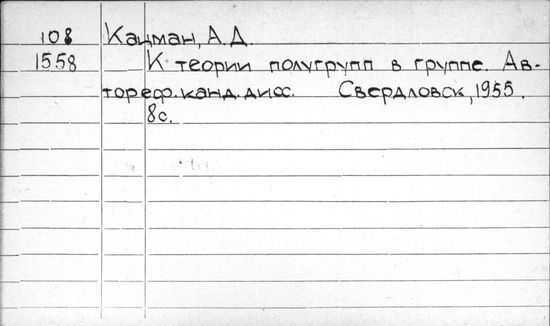 108 Кацман, А.Д.
1558 К теории полугрупп в группе. Ав-
тореф. канд. дисс. Свердловск, 1955.
8с.